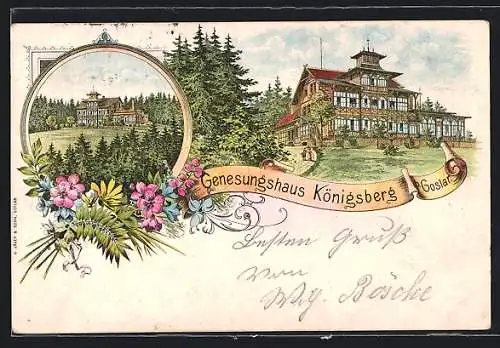 Genesungshaus Königsberg
Goslar
Besten Gruß
von
Bösche